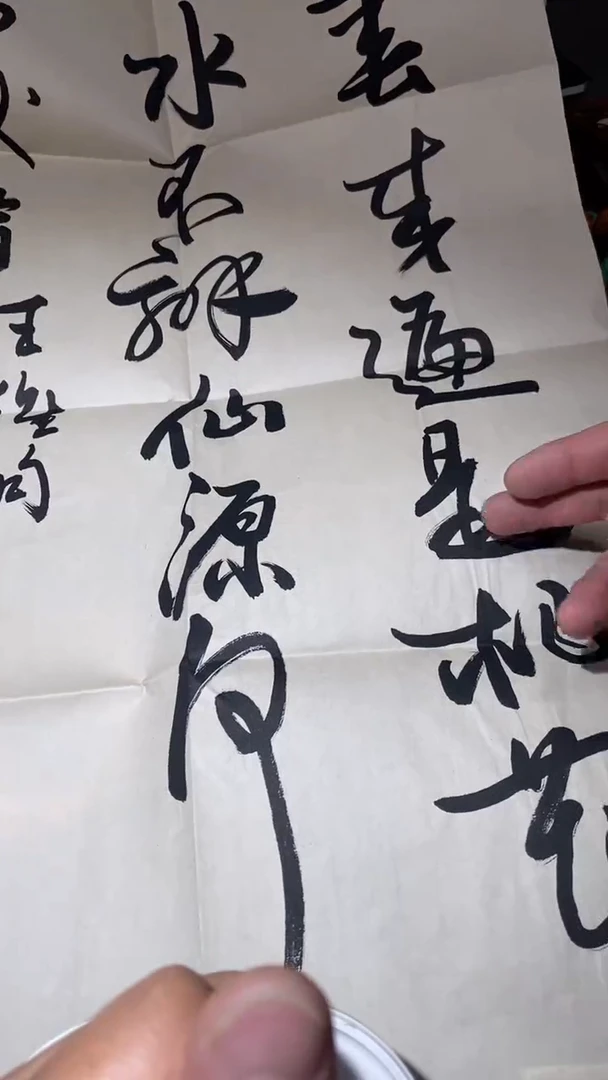 春来遍是桃花
水不辨仙源何
王维句